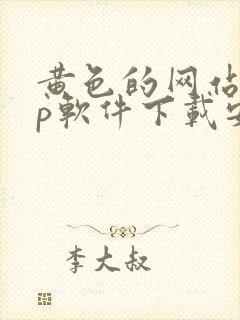 黄色的网站
p软件下载安
李大叔